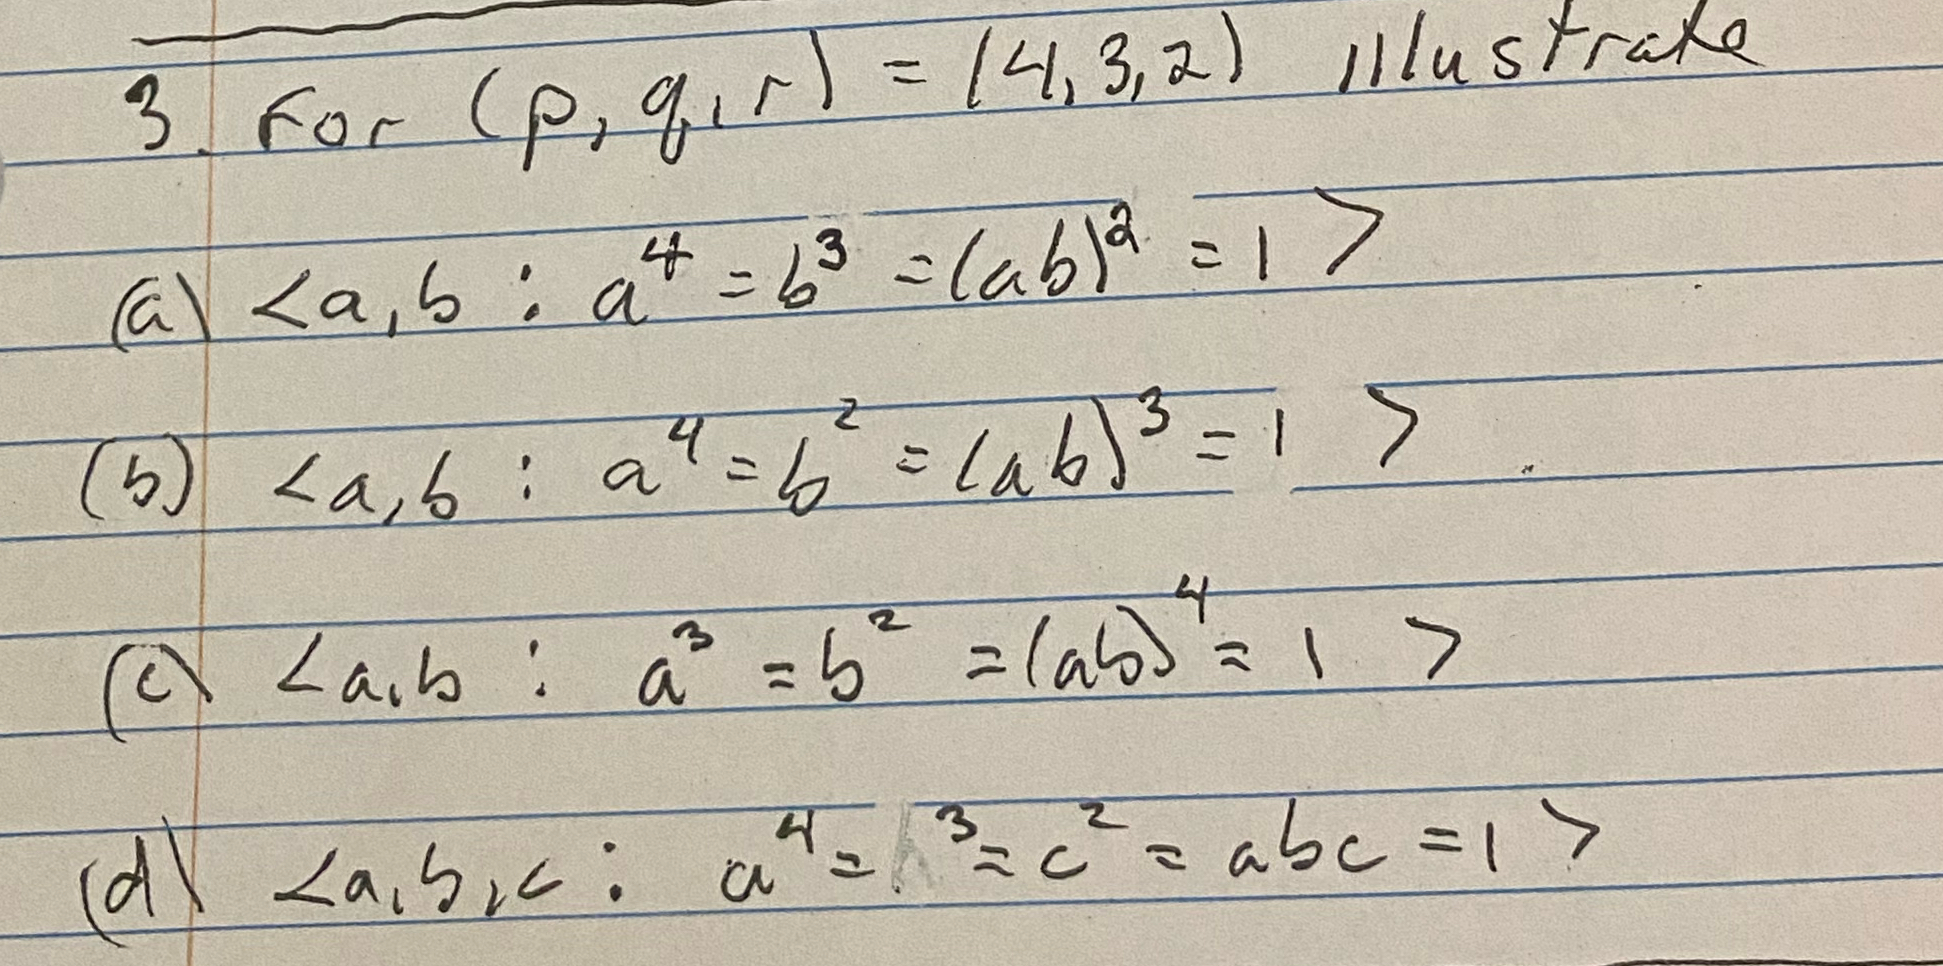 3. For (p, q, r) = (4, 3, 2) illustrate
(a) <a, b : a⁴ = b³ = (ab)² = 1 >
(b) <a, b : a⁴ = b² = (ab)³ = 1 >
(c) <a, b : a³ = b² = (ab)⁴ = 1 >
(d) <a, b, c : a⁴ = b³ = c² = abc = 1 >